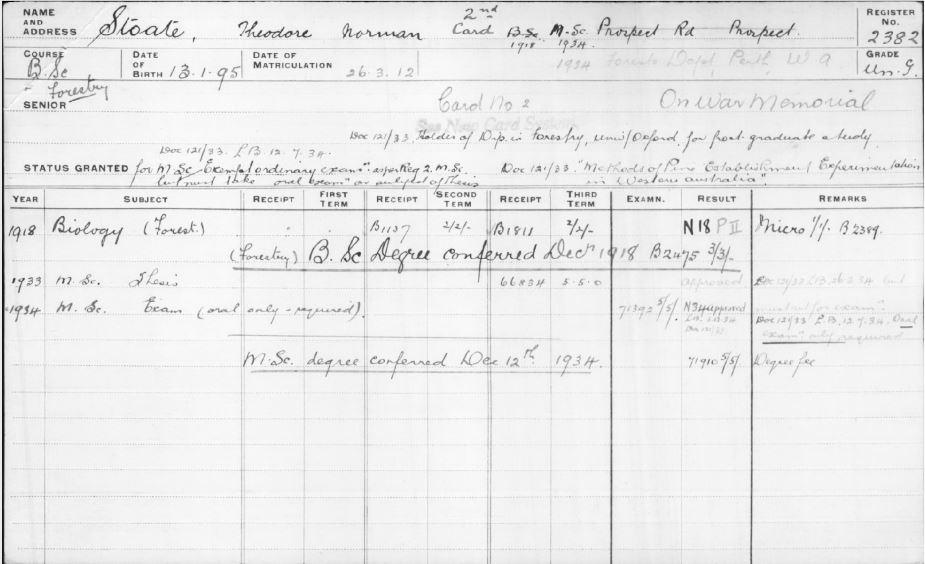 NAME AND ADDRESS Stoate, Theodore Norman 2nd Card B.Sc. 1918. M.Sc. 1934. Prospect Rd Prospect. REGISTER No. 2382
COURSE B.Sc Forestry DATE OF BIRTH 13.1.95 DATE OF MATRICULATION 26.3.12 1934 Forests Dept, Perth, W A GRADE Un. G.
SENIOR Card No 2 On War Memorial
See New Card System
Doc 121/33. Holder of Dip. in Forestry, Univ/Oxford, for post-graduate study
Doc 121/33. L.B. 12.7.34.
STATUS GRANTED for M.Sc Exempt ordinary exam as per Reg 2. M.Sc. Doc 121/33. "Methods of Pine Establishment Experimentation
but must take oral exam on subject of Thesis in Western Australia".
YEAR SUBJECT RECEIPT FIRST TERM RECEIPT SECOND TERM RECEIPT THIRD TERM EXAMN. RESULT REMARKS
1918 Biology (Forest.) B1137 2/2/- B1811 2/2/- N18 P II Micro 1/1/- B2389.
(Forestry) B.Sc Degree conferred Decr 1918 B2475 3/3/-
1933 M.Sc. Thesis 66834 5.5.0 approved Doc 121/33 L.B. 26.3.34 but
must sit for exam".
1934 M.Sc. Exam (oral only - required). 71392 5/5/. N34 approved Doc 121/33 L.B. 12.7.34. Oral
exam only required
M.Sc. degree conferred Dec 12th 1934. 71910 5/5/. Degree fee